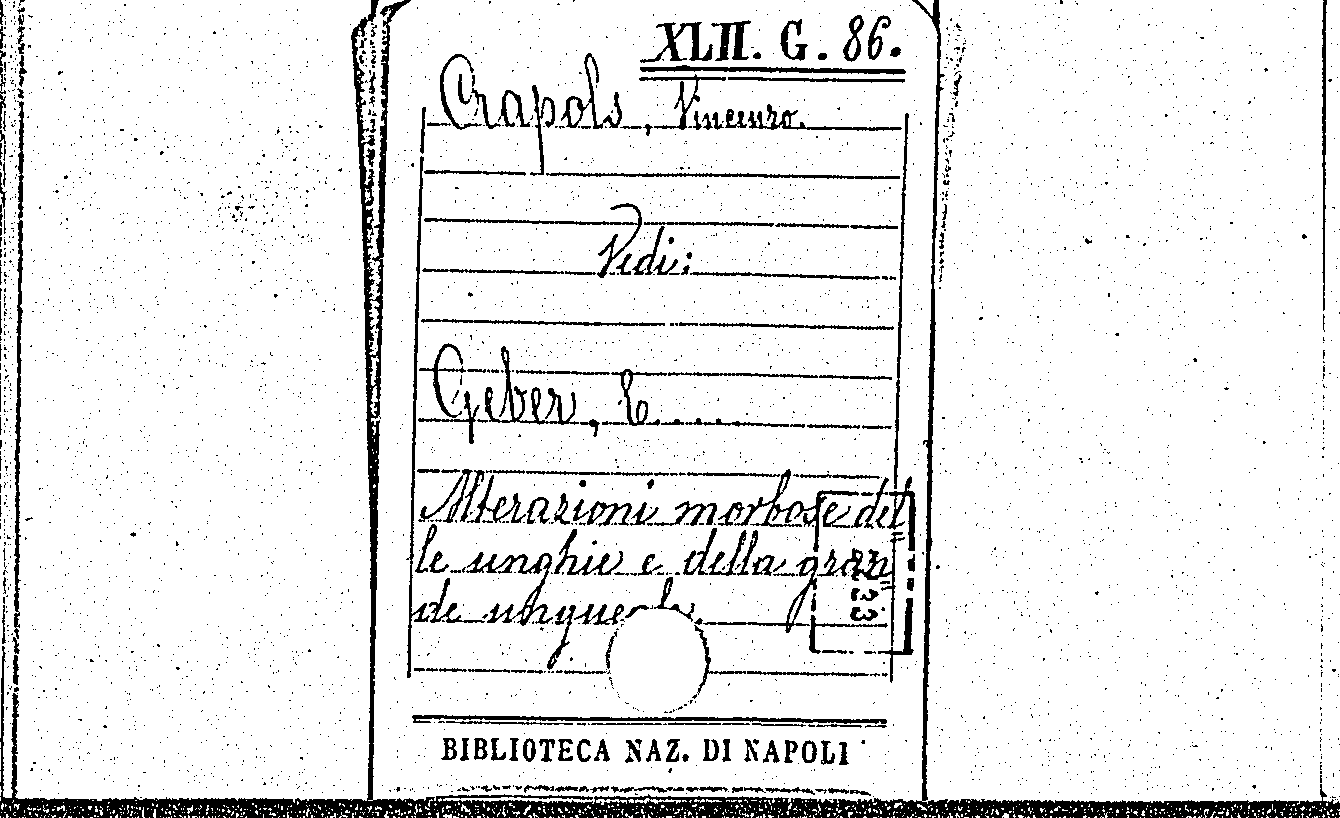 XLII. G. 86.
Crapols, Vincenzo.
Vedi:
Geber, E.....
Alterazioni morbose del=
le unghie e della gran=
de ungueale.
233
BIBLIOTECA NAZ. DI NAPOLI